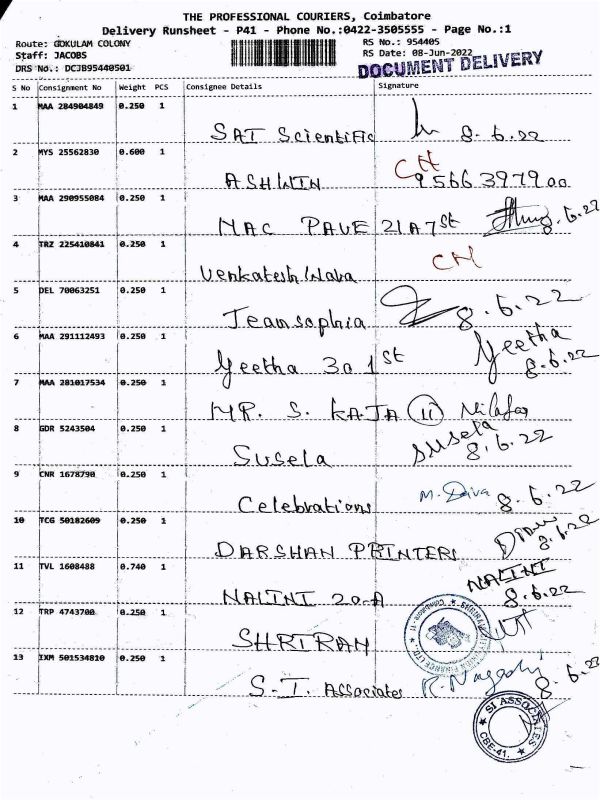 THE PROFESSIONAL COURIERS, Coimbatore
Delivery Runsheet - P41 - Phone No.:0422-3505555 - Page No.:1
Route: GOKULAM COLONY RS No.: 954405
Staff: JACOBS RS Date: 08-Jun-2022
DRS No.: DCJB95440501 DOCUMENT DELIVERY
S No Consignment No Weight PCS Consignee Details Signature
1 MAA 284904849 0.250 1
SAI Scientific 8.6.22
2 MYS 25562830 0.600 1
ASHWIN CH 9566397900
3 MAA 290955084 0.250 1
MAC PAVE 21A 7st 8.6.22
4 TRZ 225410841 0.250 1
Venkatesh CH
5 DEL 70063251 0.250 1
Jeansophia 8.6.22
6 MAA 291112493 0.250 1
Geetha 30 1st Geetha 8.6.22
7 MAA 281017534 0.250 1
MR. S. KAJA 11 Nilafar
8 GDR 5243504 0.250 1
Susela Susela 8.6.22
9 CNR 1678790 0.250 1
Celebrations M. Deiva 8.6.22
10 TCG 50182609 0.250 1
DARSHAN PRINTERS 8.6.22
11 TVL 1608488 0.740 1
NALINI 20-A NALINI 8.6.22
12 TRP 4743700 0.250 1
SHRIRAM
FINANCE LTD.
13 IXM 501534810 0.250 1
S.I. Associates R. Nagesh 8.6.22
SI ASSOCIATES
CBE-41.